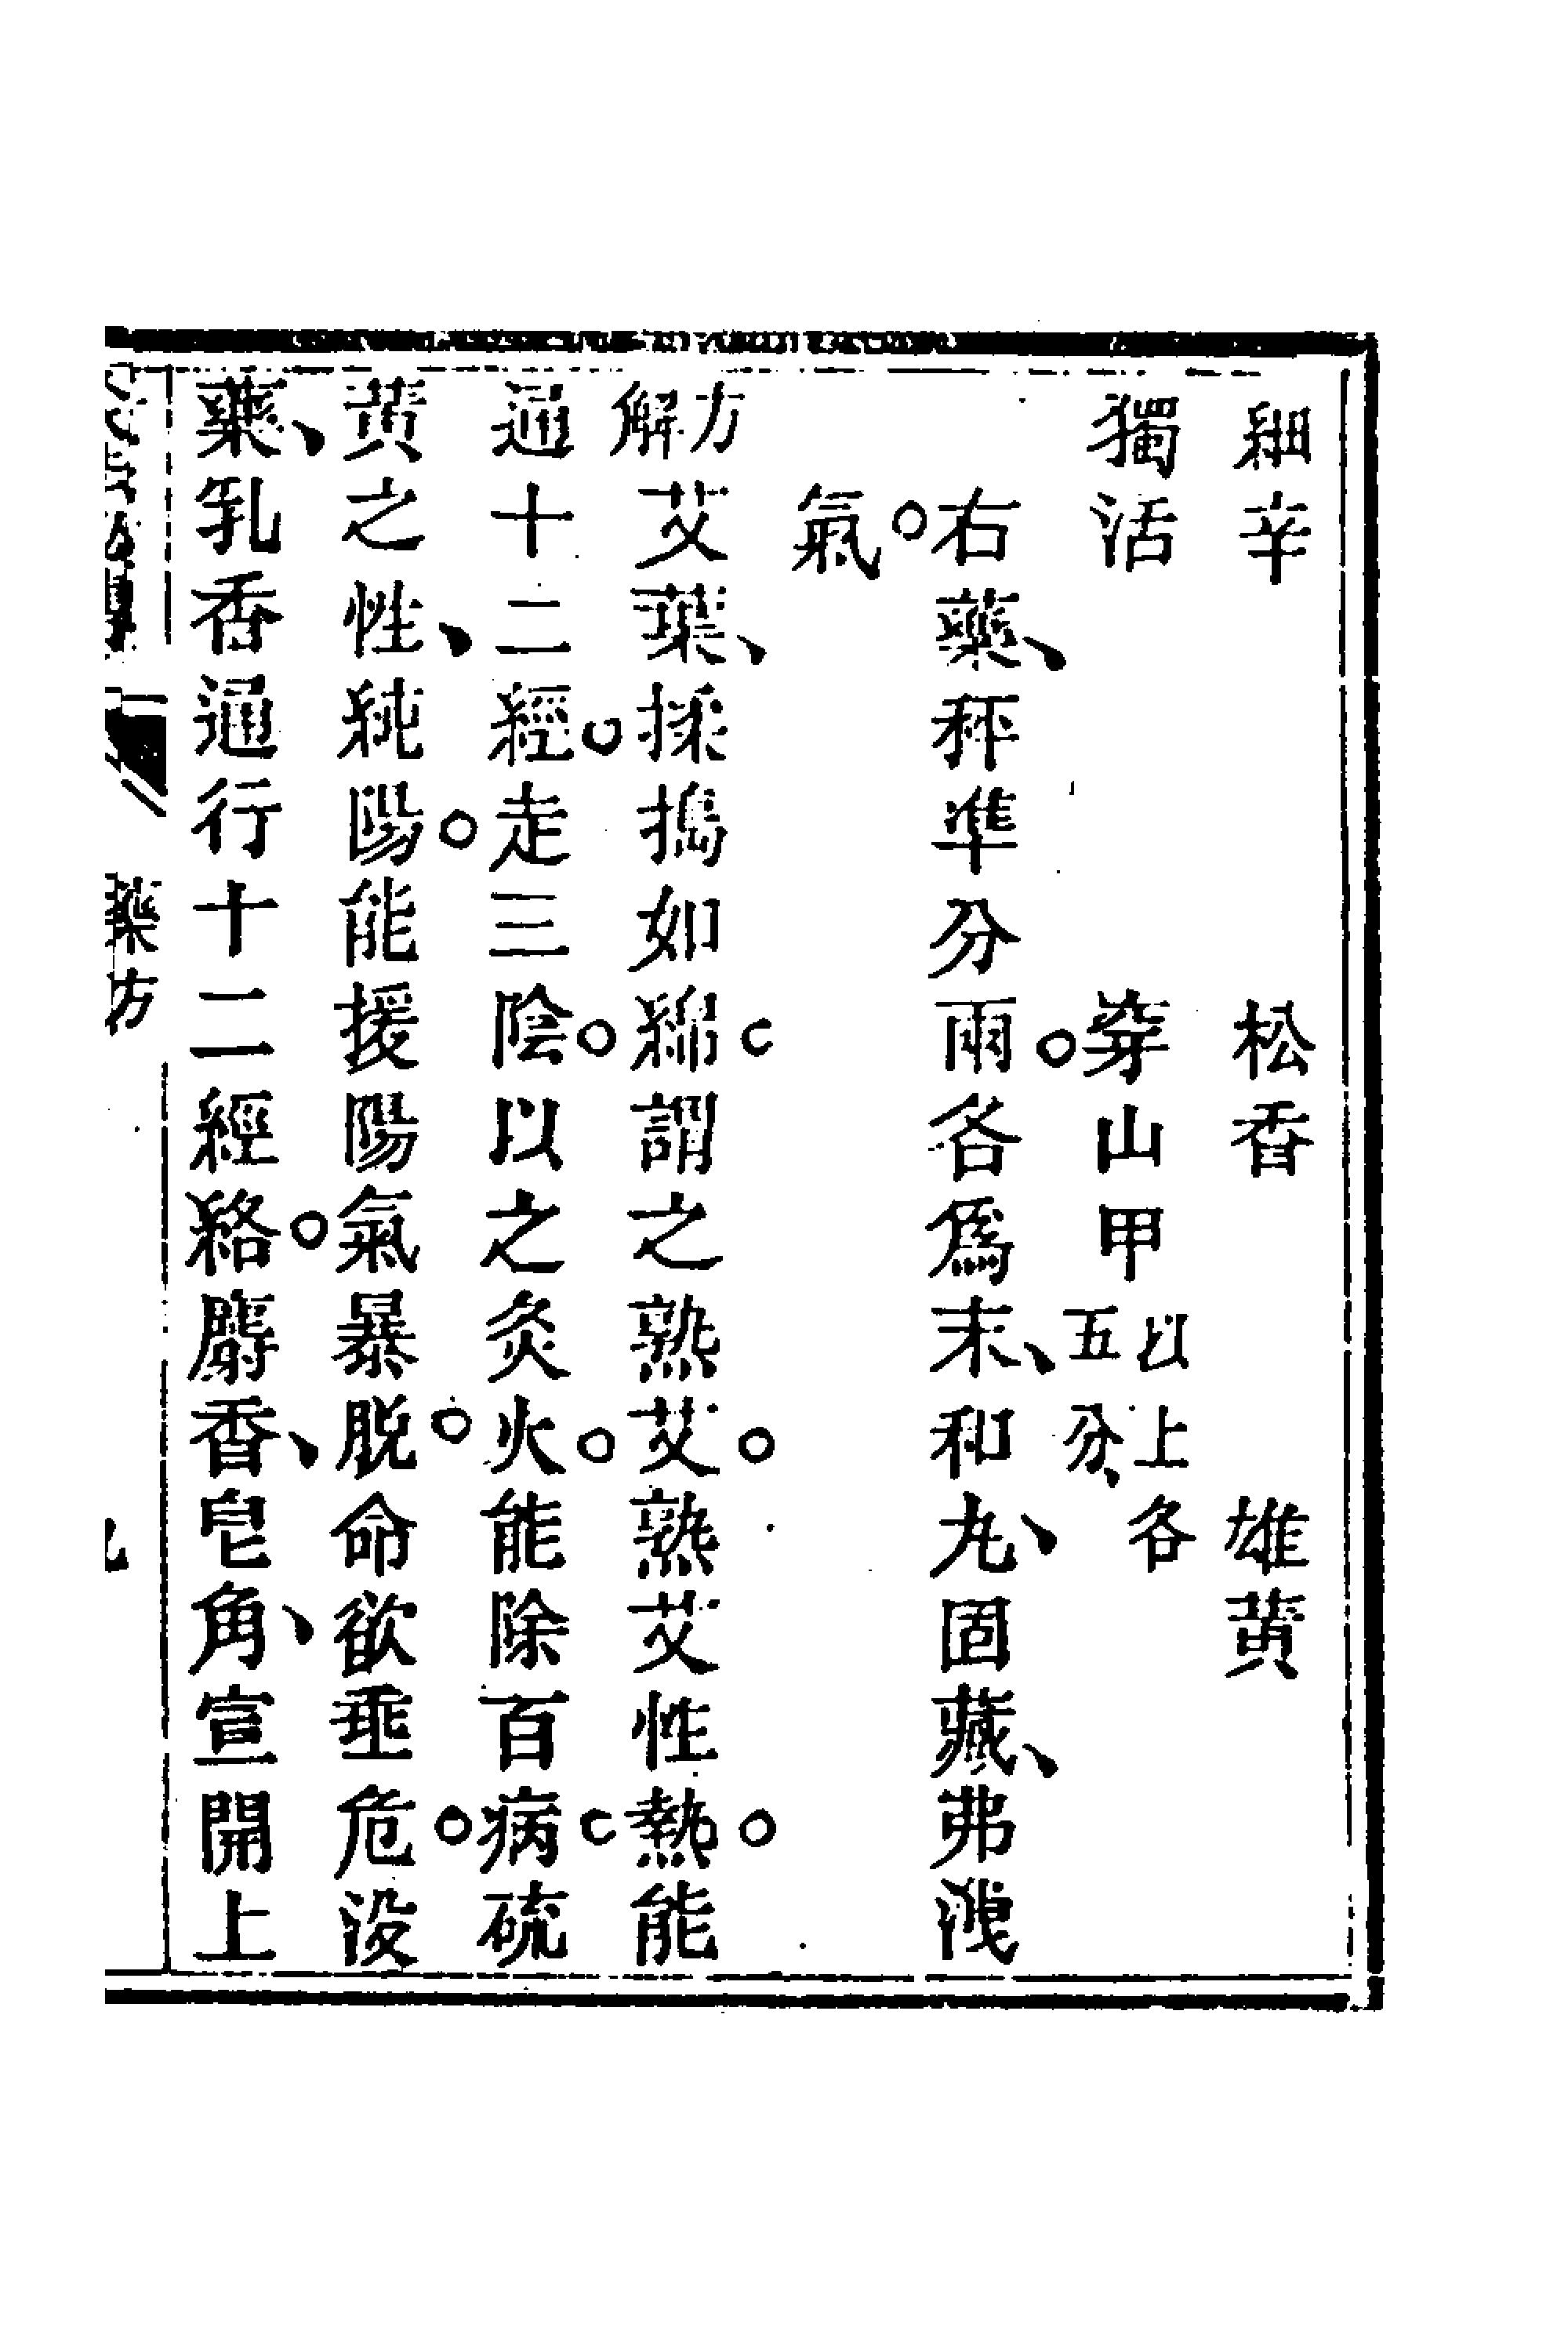 細辛　松香　雄黃
獨活　穿山甲以上各五分、
右藥、秤準分兩。各爲末、和丸、固藏、弗洩
氣。
方解　艾葉、採搗如綿。謂之熟艾。熟艾性熱。能
通十二經。走三陰。以之灸火。能除百病。硫
黃之性、純陽。能援陽氣暴脫。命欲垂危。沒
藥、乳香通行十二經絡。麝香、皂角、宣開上
藥方